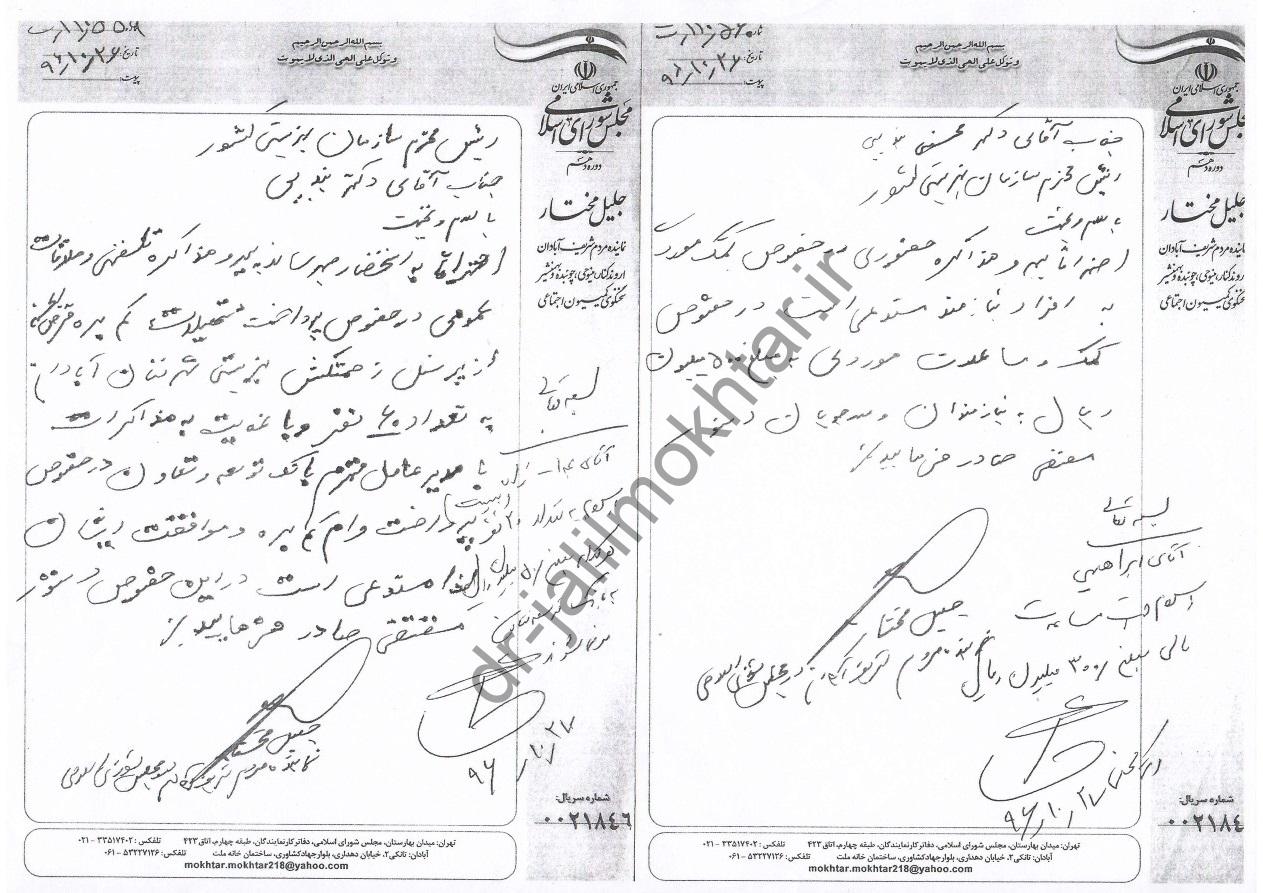 بسم الله الرحمن الرحیم
و توکل علی الحی الذی لا یموت
تاریخ: ۹۶/۱۰/۲۶
پیوست:
جمهوری اسلامی ایران
مجلس شورای اسلامی
دوره دهم
جلیل مختار
نماینده مردم شریف آبادان
اروندکنار، مینوحی، چوئبده و بهمنشیر
سخنگوی کمیسیون اجتماعی
جناب آقای دکتر محسنی بندپی
رئیس محترم سازمان بهزیستی کشور
با سلام و تحیت
احتراماً پیرو مذاکره حضوری در خصوص کمک موردی
به افراد نیازمند مستدعی است در خصوص
کمک و مساعدت موردی به مبلغ ۵۰۰ میلیون
ریال به نیازمندان و مددجویان دستور
مقتضی صادر فرمایید
جلیل مختار
نماینده مردم شریف آبادان در مجلس شورای اسلامی
بسمه تعالی
آقای ابراهیمی
مبلغ ۳۰۰ میلیون ریال
۹۶/۱۰/۲۷
شماره سریال:
۰۰۲۱۸۴
تهران: میدان بهارستان، مجلس شورای اسلامی، دفاتر کار نمایندگان، طبقه چهارم، اتاق ۴۲۳ تلفکس: ۳۳۵۱۷۴۰۲ - ۰۲۱
آبادان: تانکی۲، خیابان دهداری، بلوار جهادکشاورزی، ساختمان خانه ملت تلفکس: ۵۳۲۲۷۱۲۶ - ۰۶۱
mokhtar.mokhtar218@yahoo.com
بسم الله الرحمن الرحیم
و توکل علی الحی الذی لا یموت
تاریخ: ۹۶/۱۰/۲۶
پیوست:
جمهوری اسلامی ایران
مجلس شورای اسلامی
دوره دهم
جلیل مختار
نماینده مردم شریف آبادان
اروندکنار، مینوحی، چوئبده و بهمنشیر
سخنگوی کمیسیون اجتماعی
رئیس محترم سازمان بهزیستی کشور
جناب آقای دکتر بندپی
با سلام و تحیت
احتراماً به استحضار میرساند پیرو مذاکره تلفنی و ملاقات
عمومی در خصوص پرداخت تسهیلات کم بهره
از پرسنل زحمتکش بهزیستی شهرستان آبادان
به تعداد ۶۰ نفر و با عنایت به مذاکرات
با مدیر عامل محترم بانک توسعه و تعاون در خصوص
پرداخت وام کم بهره و موافقت ایشان
لذا مستدعی است در این خصوص دستور
مقتضی صادر فرمایید
جلیل مختار
نماینده مردم شریف آبادان در مجلس شورای اسلامی
بسمه تعالی
۹۶/۱۰/۲۷
شماره سریال:
۰۰۲۱۸۴۶
تهران: میدان بهارستان، مجلس شورای اسلامی، دفاتر کار نمایندگان، طبقه چهارم، اتاق ۴۲۳ تلفکس: ۳۳۵۱۷۴۰۲ - ۰۲۱
آبادان: تانکی۲، خیابان دهداری، بلوار جهادکشاورزی، ساختمان خانه ملت تلفکس: ۵۳۲۲۷۱۲۶ - ۰۶۱
mokhtar.mokhtar218@yahoo.com
dr-jalilmokhtar.ir